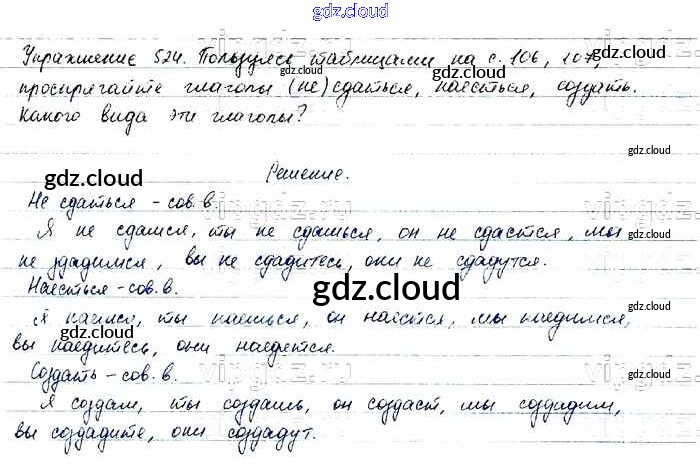 gdz.cloud
Упражнение 524. Пользуясь таблицами на с. 106, 107,
gdz.cloud
gdz.cloud
проспрягайте глаголы (не)сдаться, наесться, создать.
Какого вида эти глаголы?
gdz.cloud
Решение.
gdz.cloud
Не сдаться - сов. в.
Я не сдамся, ты не сдашься, он не сдастся, мы
gdz.cloud
не здадимся, вы не сдадитесь, они не сдадутся.
Наесться - сов. в.
gdz.cloud
Я наемся, ты наешься, он наестся, мы наедимся,
gdz.cloud
gdz.cloud
вы наедитесь, они наедятся.
Создать - сов. в.
gdz.cloud
Я создам, ты создашь, он создаст, мы создадим,
вы создадите, они создадут.
gdz.cloud
gdz.cloud